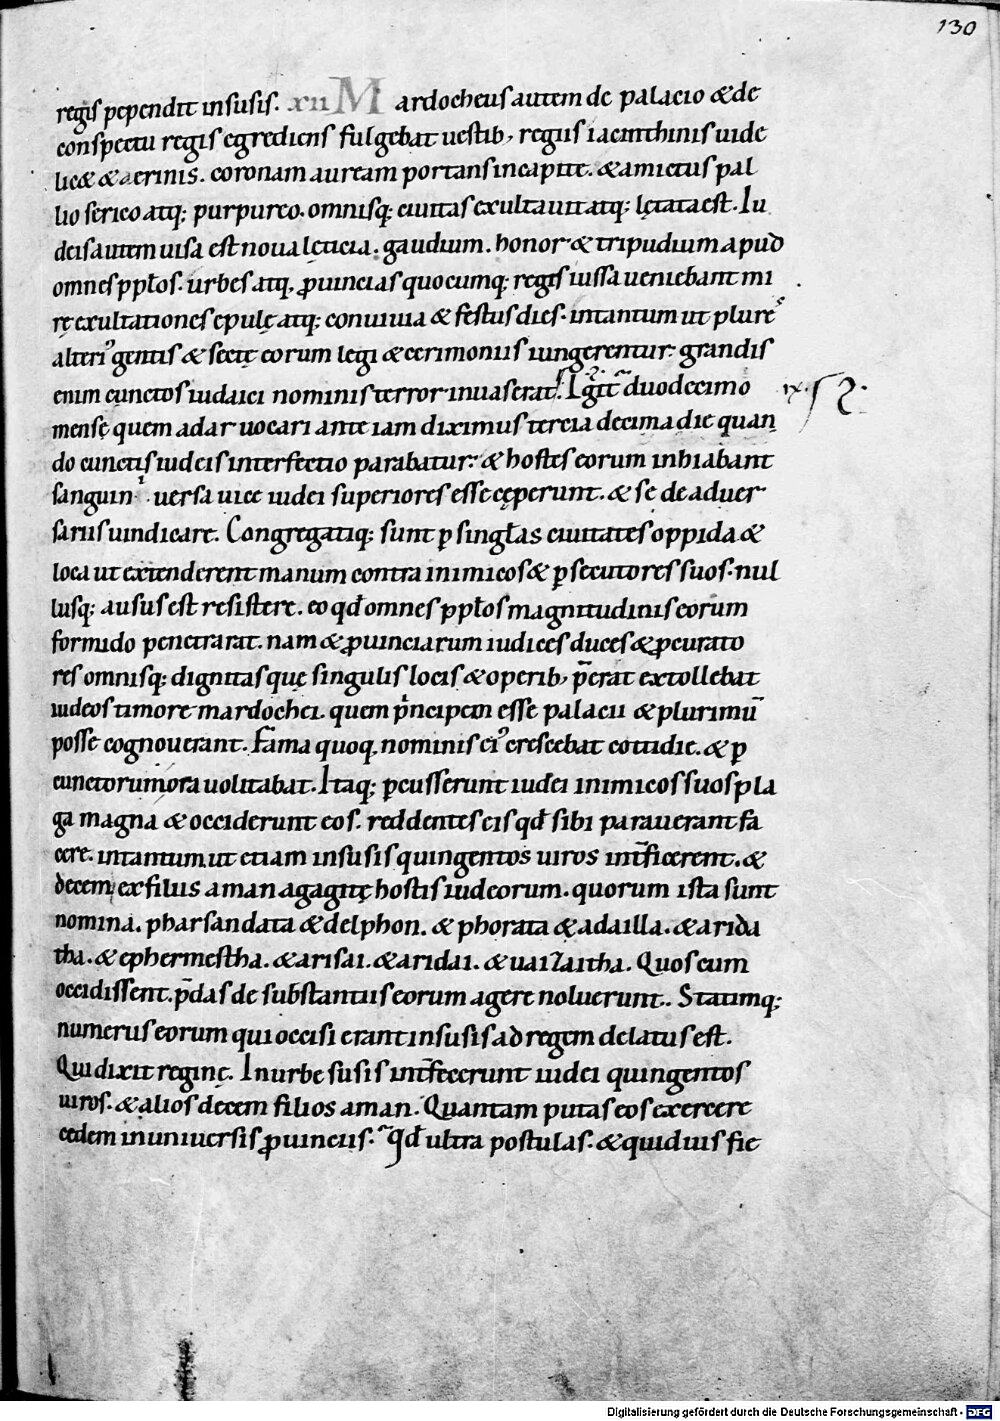 130
regis pependit insusis. xii Mardocheus autem de palacio &de
conspectu regis egrediens fulgebat uestib; regiis iacinthinis uide
lic& &aerinis. coronam auream portans incapite. &amictus pal
lio serico atq; purpureo. omnisq; ciuitas exultauit atq; lętata est. Iu
deis autem uisa est noua lęticia. gaudium. honor & tripudium apud
omnes ppłos. urbes atq; ꝓuincias quocumq; regis iussa ueniebant mi
rę exultationes epulę atq; conuiuia & festus dies. intantum ut plures
alteri᾽ gentis & sectę eorum legi &cerimoniis iungerentur. grandis
enim cunctos iudaici nominis terror inuaserat. Igit̄ duodecimo ix.
mensę quem adar uocari ante iam diximus tercia decima die quan
do cunctis iudeis interfectio parabatur. & hostes eorum inhiabant
sanguini. uersa uice iudei superiores esse cęperunt. & se de aduer
sariis uindicare. Congregatiq; sunt ꝑ singłas ciuitates oppida &
loca ut extenderent manum contra inimicos & ꝑsecutores suos. nul
lusq; ausus est resistere. eo qđ omnes ppłos magnitudinis eorum
formido penetrarat. nam & ꝓuinciarum iudices duces &ꝓcurato
res omnisq; dignitas quę singulis locis &operib; p̄erat extollebat
iudeos timore mardochei. quem pͥncipem esse palacii & plurimū
posse cognouerant. Fama quoq; nominis ei᾽ crescebat cottidie. & ꝑ
cunctorum ora uolitabat. Itaq; ꝑcusserunt iudei inimicos suos pla
ga magna & occiderunt eos. reddentes eis qđ sibi parauerant fa
cere. intantum. ut etiam insusis quingentos uiros int̄ficerent. &
decem ex filiis aman agagitę hostis iudeorum. quorum ista sunt
nomina. pharsandata &delphon. & phorata &adailla. &arida
tha. &ephermestha. &arisai. &aridai. & uaizaitha. Quos cum
occidissent. p̄das de substantiis eorum agere noluerunt. Statimq;
numerus eorum qui occisi erant insusis ad regem delatus est.
Qui dixit reginę. Inurbe susis int̄fecerunt iudei quingentos
uiros. &alios decem filios aman. Quantam putas eos exercere
cedem inuniuersis ꝓuinciis. qđ ultra postulas. &quid uis fie
Digitalisierung gefördert durch die Deutsche Forschungsgemeinschaft - DFG